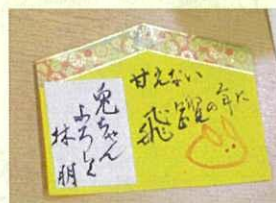 甘えない
飛躍の年に
兎ちゃん
よろしく
林 朋